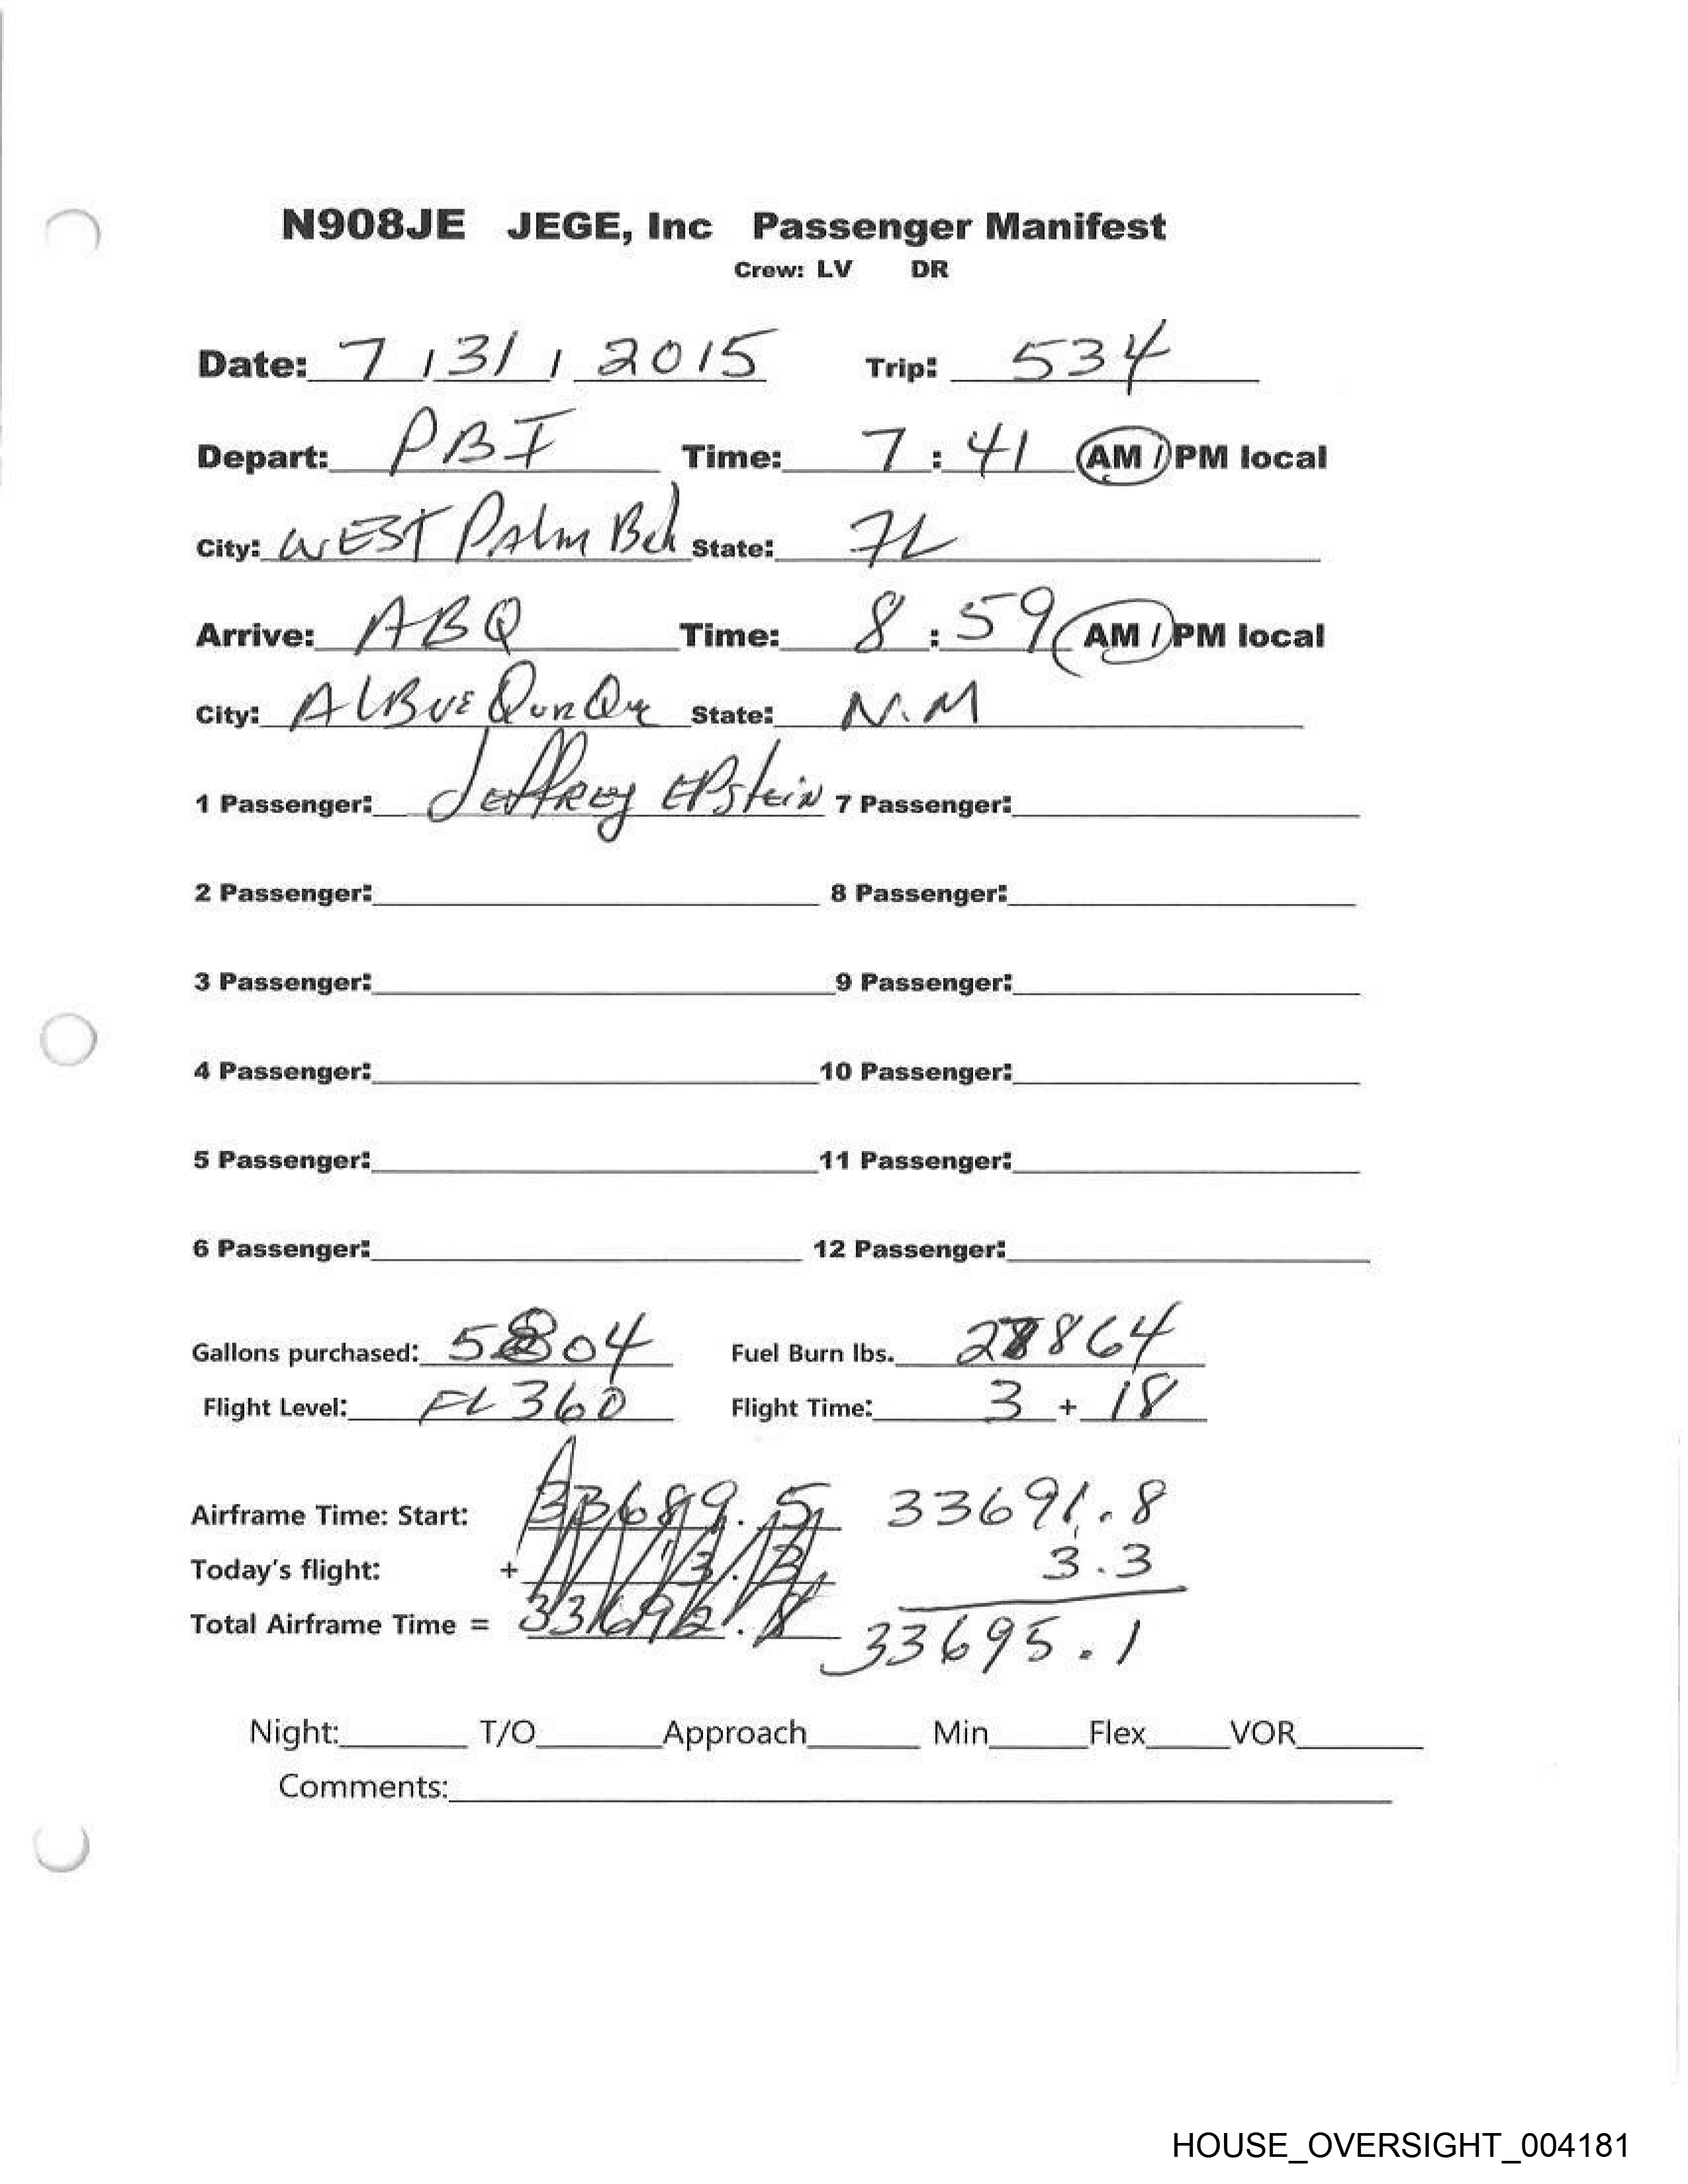 N908JE JEGE, Inc Passenger Manifest
Crew: LV DR
Date: 7 / 31 / 2015 Trip: 534
Depart: PBI Time: 7 : 41 AM / PM local
City: WEST PAlm Bch State: FL
Arrive: ABQ Time: 8 : 59 AM / PM local
City: State: N.M
1 Passenger: JEffREy EPstein 7 Passenger:
2 Passenger: 8 Passenger:
3 Passenger: 9 Passenger:
4 Passenger: 10 Passenger:
5 Passenger: 11 Passenger:
6 Passenger: 12 Passenger:
Gallons purchased: Fuel Burn lbs.
Flight Level: FL 360 Flight Time: 3 + 18
Airframe Time: Start: 33689.5 33691.8
Today's flight: + 3.3 3.3
Total Airframe Time = 33692.8 33695.1
Night: T/O Approach Min Flex VOR
Comments:
HOUSE_OVERSIGHT_004181